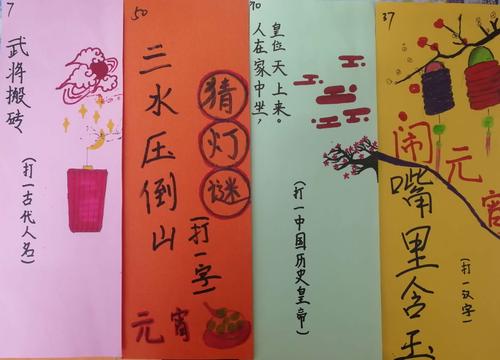 7
武将搬砖
（打一古代人名）
50
三水压倒山
猜灯谜
（打一字）
元宵
70
人在家中坐，
皇位天上来。
（打一中国历史皇帝）
37
闹元宵
嘴里含玉
（打一汉字）